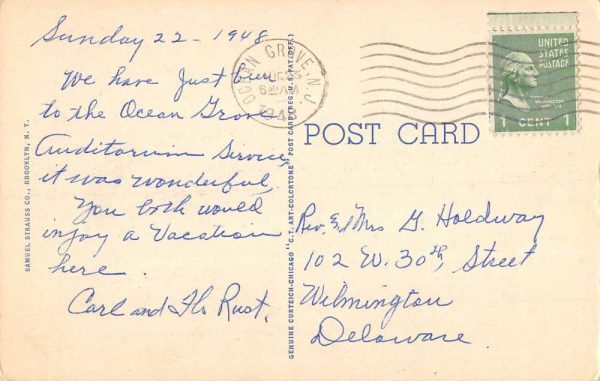 Sunday 22 - 1948
We have Just been
to the Ocean Grove
Auditorium Service,
it was wonderful.
You both would
injoy a Vacation
here.
Carl and Flo Rust.
SAMUEL STRAUSS CO., BROOKLYN, N. Y.
GENUINE CURTEICH-CHICAGO "C.T. ART-COLORTONE" POST CARD (REG. U.S. PAT. OFF.)
OCEAN GROVE, N.J.
AUG
AM
1948
UNITED
STATES
POSTAGE
1 CENT 1
POST CARD
Rev. & Mrs G. Holdway
102 W. 30th, Street
Wilmington
Delaware.